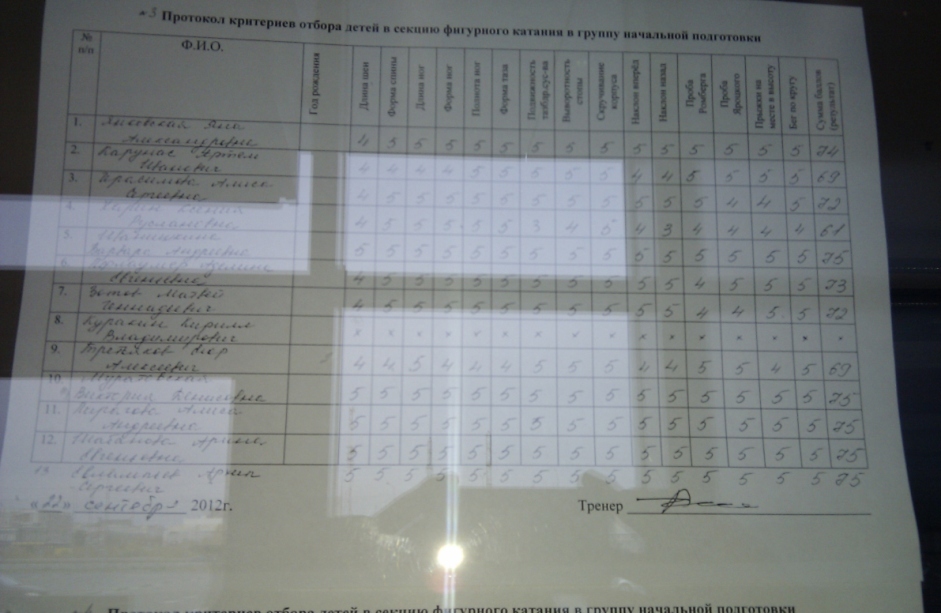 №3 Протокол критериев отбора детей в секцию фигурного катания в группу начальной подготовки
№ п/п Ф.И.О. Год рождения Длина шеи Форма спины Длина ног Форма ног Полнота ног Форма таза Подвижность тазобедр.сус-ва Выворотность стопы Скручивание корпуса Наклон вперёд Наклон назад Проба Ромберга Проба Яроцкого Прыжки на месте в высоту Бег по кругу Сумма баллов (результат)
1.
Александровна 4 5 5 5 5 5 5 5 5 5 5 5 5 5 5 74
2. Карунас Артем
Иванович 4 4 4 4 5 5 5 5 5 4 4 5 5 5 5 69
3. Герасимова Алиса
Сергеевна 4 5 5 5 5 5 5 5 5 5 5 5 4 4 5 72
4. Ксения
Руслановна 4 5 5 5 5 5 3 4 5 4 3 4 4 4 4 61
5.
Варвара Андреевна 5 5 5 5 5 5 5 5 5 5 5 5 5 5 5 75
6.
4 5 5 5 5 5 5 5 5 5 5 4 5 5 5 73
7. Зотов Матвей
Геннадьевич 4 5 5 5 5 5 5 5 5 5 5 4 4 5 5 72
8. Куракин Кирилл
Владимирович × × × × × × × × × × × × × × × ×
9. Третьяков Егор
Алексеевич 4 4 5 4 4 4 5 5 5 4 4 5 5 4 5 69
10. Муратовская
Виктория Денисовна 5 5 5 5 5 5 5 5 5 5 5 5 5 5 5 75
11. Кирилова Алиса
Андреевна 5 5 5 5 5 5 5 5 5 5 5 5 5 5 5 75
12. Шабанова Арина
Евгеньевна 5 5 5 5 5 5 5 5 5 5 5 5 5 5 5 75
13. Артем
Сергеевич 5 5 5 5 5 5 5 5 5 5 5 5 5 5 5 75
«22» сентябр 2012г. Тренер
Протокол критериев отбора детей в секцию фигурного катания в группу начальной подготовки